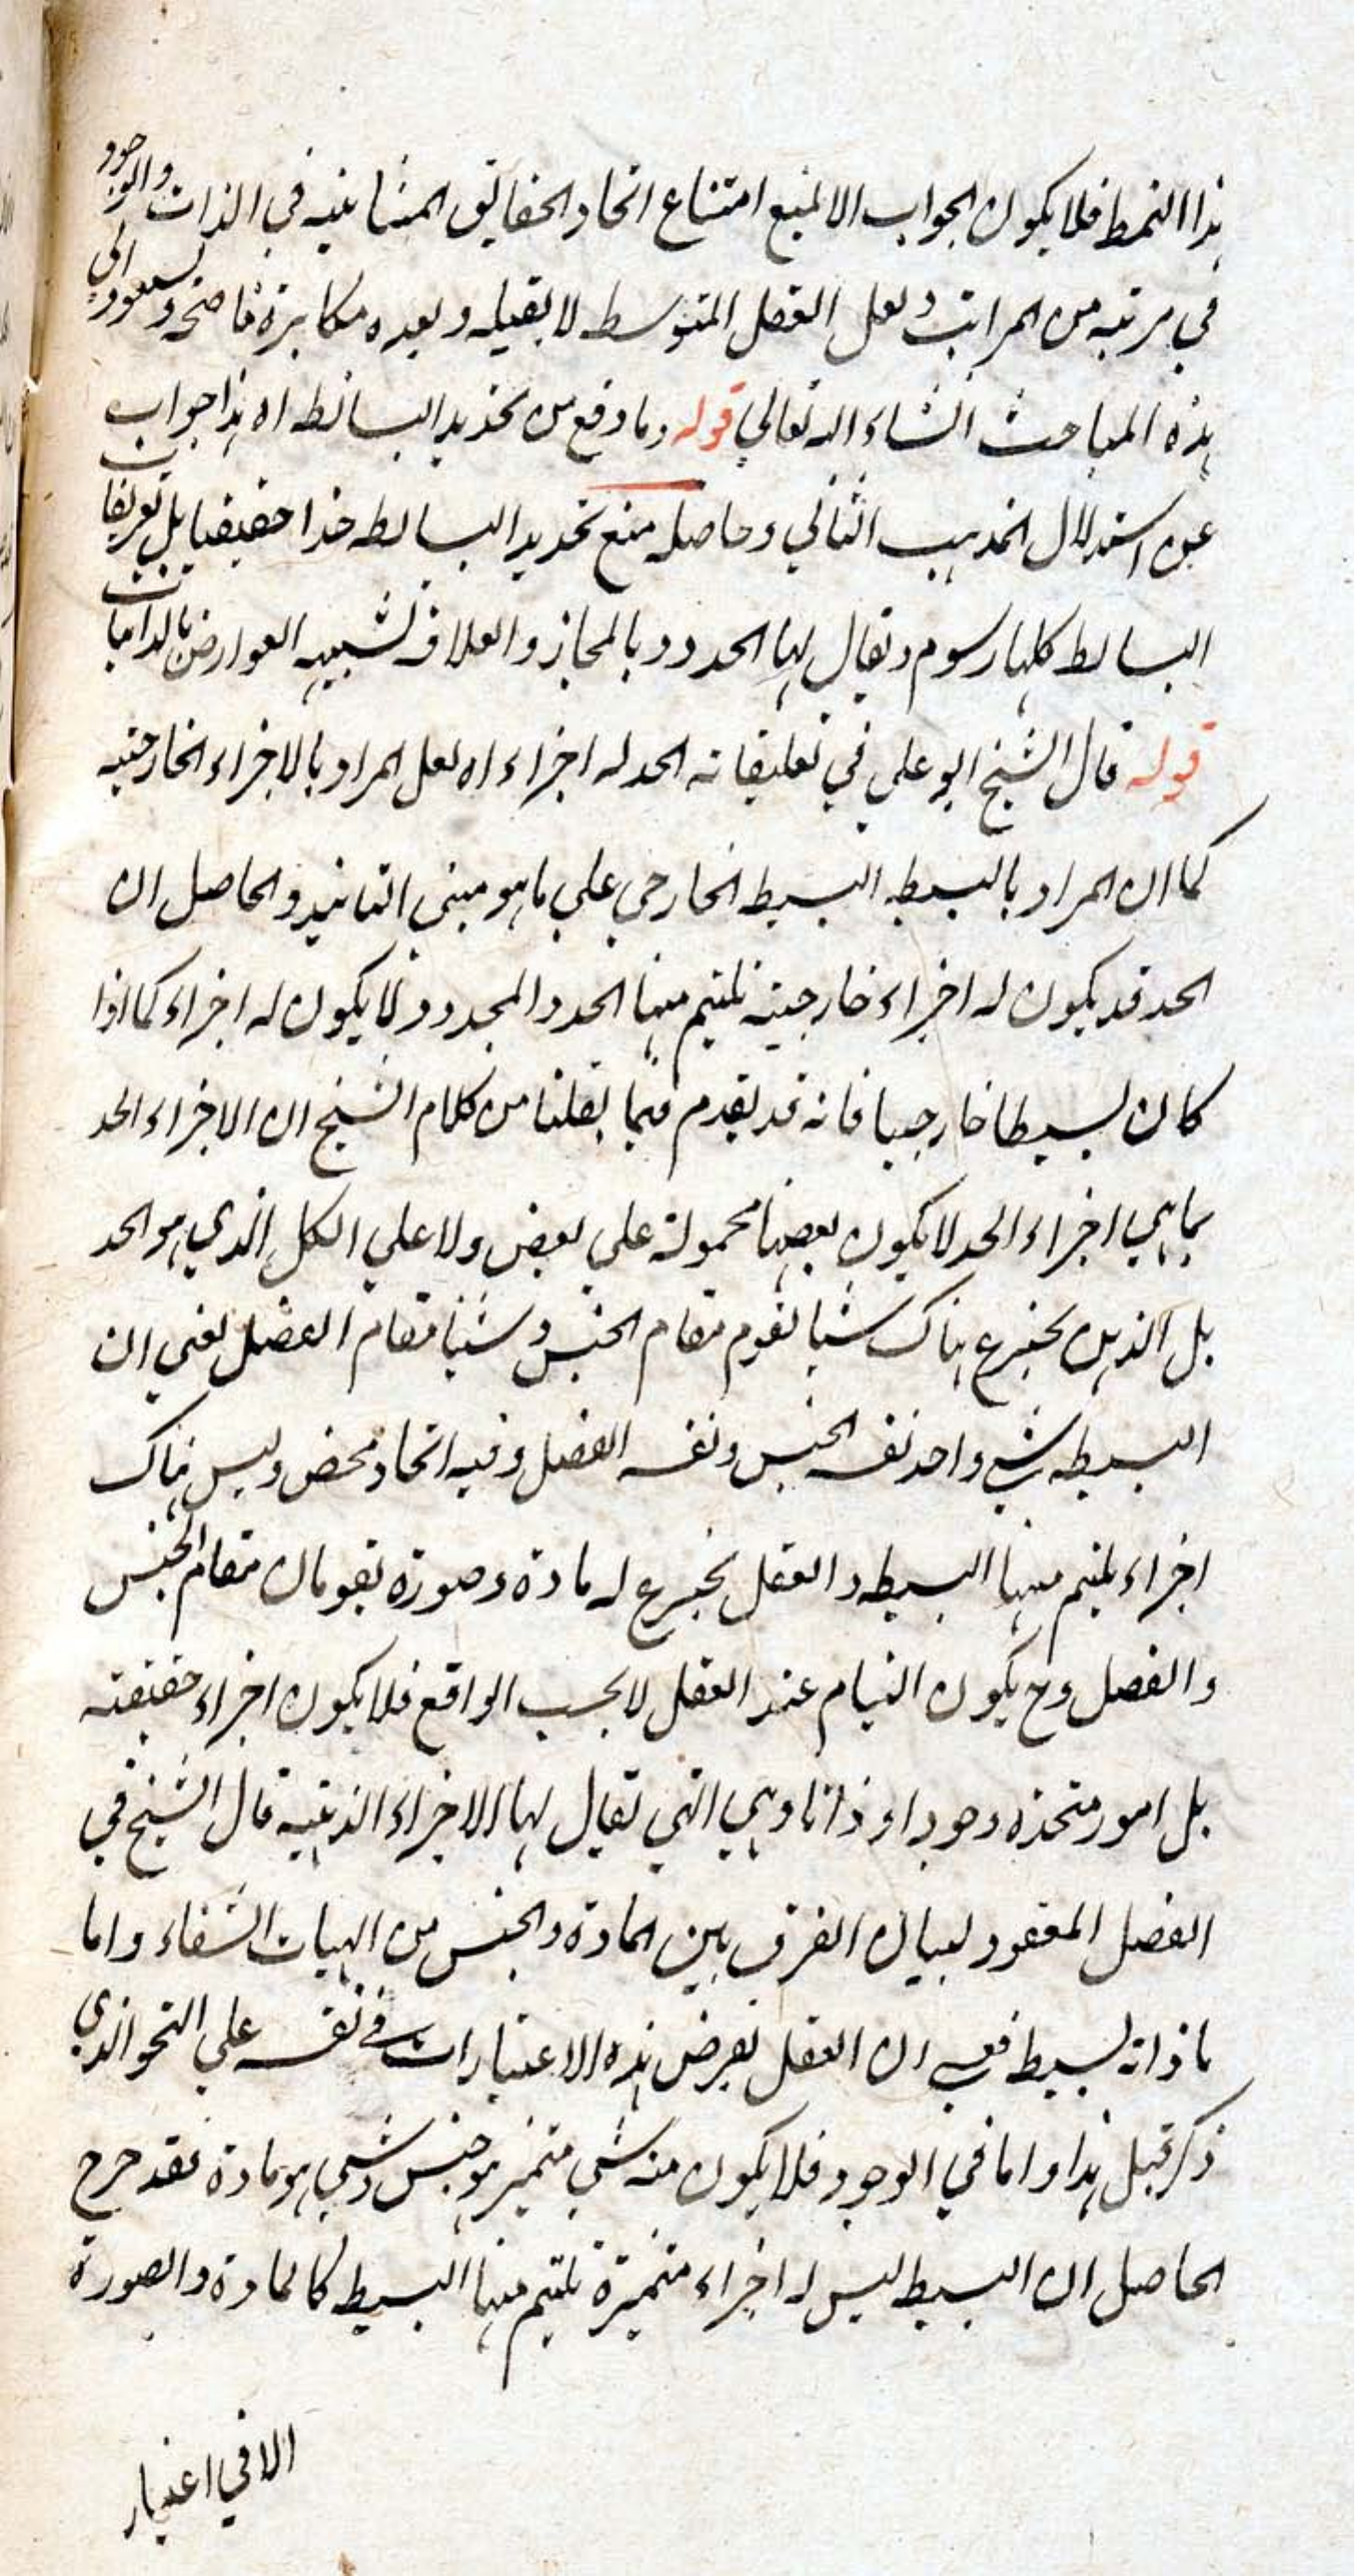 هذا النمط فلا يكون الجواب الا لمنع امتناع اتحاد الحقائق المتباينة في الذات والوجود
في مرتبة من المراتب ولعل العقل المتوسط لا يقبله ويعده مكابرة فاضحة وسنعود الى
هذه المباحث انشاء الله تعالي قوله وما وقع من تحديد البسائط اه هذا جواب
عن استدلال المذهب الثاني وحاصله منع تحديد البسائط حدا حقيقيا بل تعريفات
البسائط كلها رسوم ويقال لها الحدود بالمجاز والعلاقة تشبيه العوارض بالذاتيات
قوله قال الشيخ ابو علي في تعليقاته الحد له اجزاء اه لعل المراد بالاجزاء الخارجية
كما ان المراد بالبسيط البسيط الخارجي علي ما هو مبنى التائيد والحاصل ان
الحد قد يكون له اجزاء خارجية تلتئم منها الحد والمحدود لا يكون له اجزاء كما اذا
كان بسيطا خارجيا فانه قد تقدم فيما نقلنا من كلام الشيخ ان الاجزاء الحد
بما هي اجزاء الحد لا يكون بعضها محمولة علي بعض ولا علي الكل الذي هو الحد
بل الذهن يخترع هناك شيا تقوم مقام الجنس وشيئا مقام الفصل يعني ان
البسيط شي واحد نفسه الجنس ونفسه الفصل وفيه اتحاد محض وليس هناك
اجزاء يلتئم منها البسيط والعقل يخترع له مادة وصورة يقومان مقام الجنس
والفصل وح يكون التيام عند العقل لا بحسب الواقع فلا يكون اجزاء حقيقته
بل امور متحدة وجودا وذاتا وهي التي تقال لها الاجزاء الذهنية قال الشيخ في
الفصل المعقود لبيان الفرق بين المادة والجنس من الهيات الشفاء واما
ما ذاته بسيط فعسى ان العقل يفرض هذه الاعتبارات في نفسه علي النحو الذي
ذكر قبل هذا واما في الوجود فلا يكون منه شي متميز هو جنس وشي هو مادة فقد خرج
الحاصل ان البسيط ليس له اجزاء متميزة تلتئم منها البسيط كالمادة والصورة
الا في اعتبار